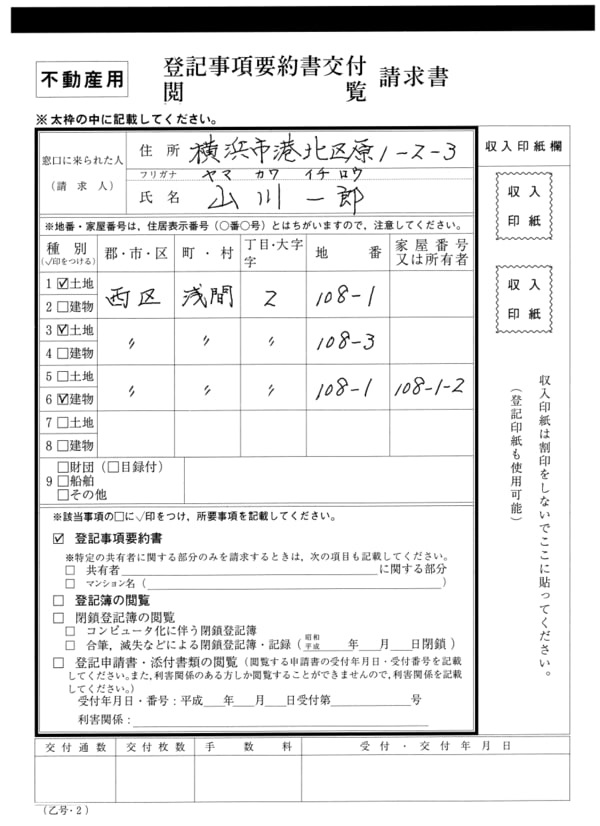 不動産用
登記事項要約書交付
閲覧
請求書
※太枠の中に記載してください。
窓口に来られた人
（請求人）
住所 横浜市港北区原1-2-3
フリガナ ヤマ カワ イチロウ
氏名 山川一郎
収入印紙欄
収入
印紙
収入
印紙
収入印紙は割印をしないでここに貼ってください。
（登記印紙も使用可能）
※地番・家屋番号は、住居表示番号（〇番〇号）とはちがいますので、注意してください。
種別
（√印をつける）
郡・市・区
町・村
丁目・大字
字
地番
家屋番号
又は所有者
1 ☑土地 西区 浅間 2 108-1
2 □建物
3 ☑土地 〃 〃 〃 108-3
4 □建物
5 □土地
6 ☑建物 〃 〃 〃 108-1 108-1-2
7 □土地
8 □建物
9 □財団（□目録付）
□船舶
□その他
※該当事項の□に√印をつけ，所要事項を記載してください。
☑ 登記事項要約書
※特定の共有者に関する部分のみを請求するときは，次の項目も記載してください。
□ 共有者 に関する部分
□ マンション名（ ）
□ 登記簿の閲覧
□ 閉鎖登記簿の閲覧
□ コンピュータ化に伴う閉鎖登記簿
□ 合筆，滅失などによる閉鎖登記簿・記録（昭和 平成 年 月 日閉鎖）
□ 登記申請書・添付書類の閲覧（閲覧する申請書の受付年月日・受付番号を記載
してください。また，利害関係のある方しか閲覧することができませんので，利害関係を記載
してください。）
受付年月日・番号：平成 年 月 日受付第 号
利害関係：
交付通数 交付枚数 手数料 受付・交付年月日
（乙号・2）